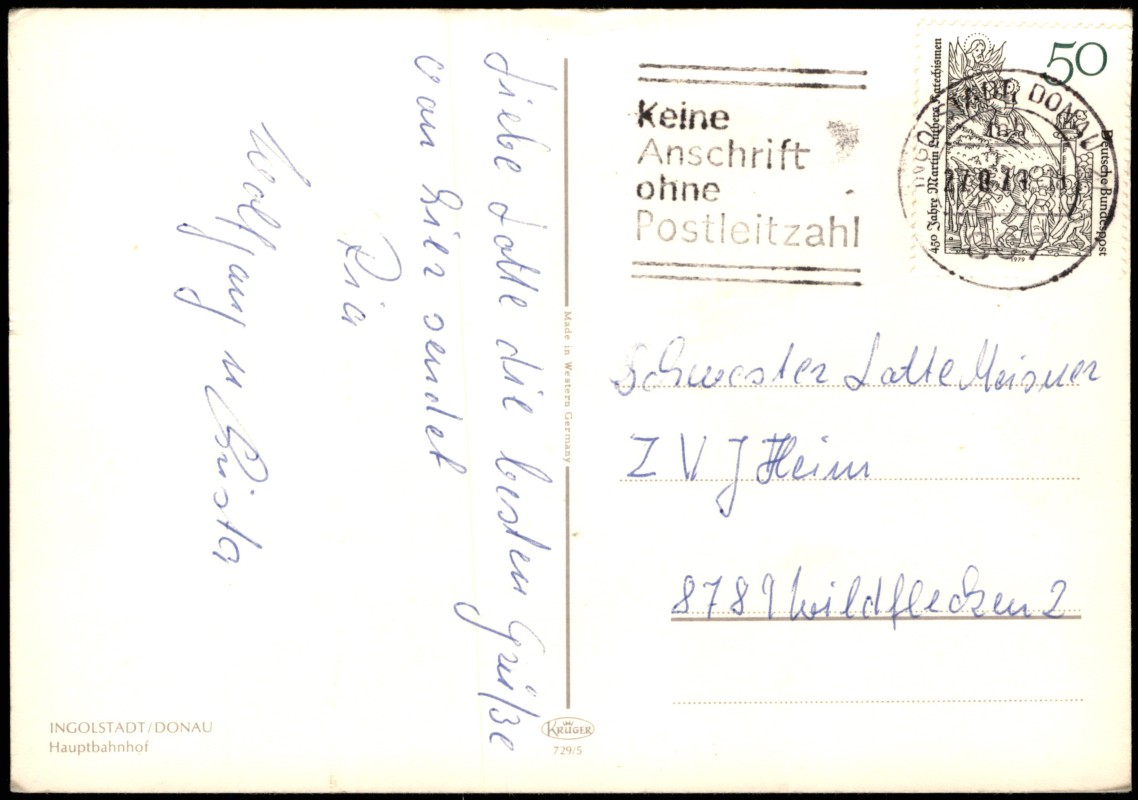 Liebe Lotte die besten Grüße
von hier sendet
Ria
Wolfgang u Christa
INGOLSTADT/DONAU
Hauptbahnhof
Made in Western Germany
KRÜGER
729/5
Keine
Anschrift
ohne
Postleitzahl
50
Deutsche Bundespost
450 Jahre Martin Luthers Katechismen
1979
DONAU
Schwester Lotte Meisner
Z V J Heim
8789 Wildflecken 2